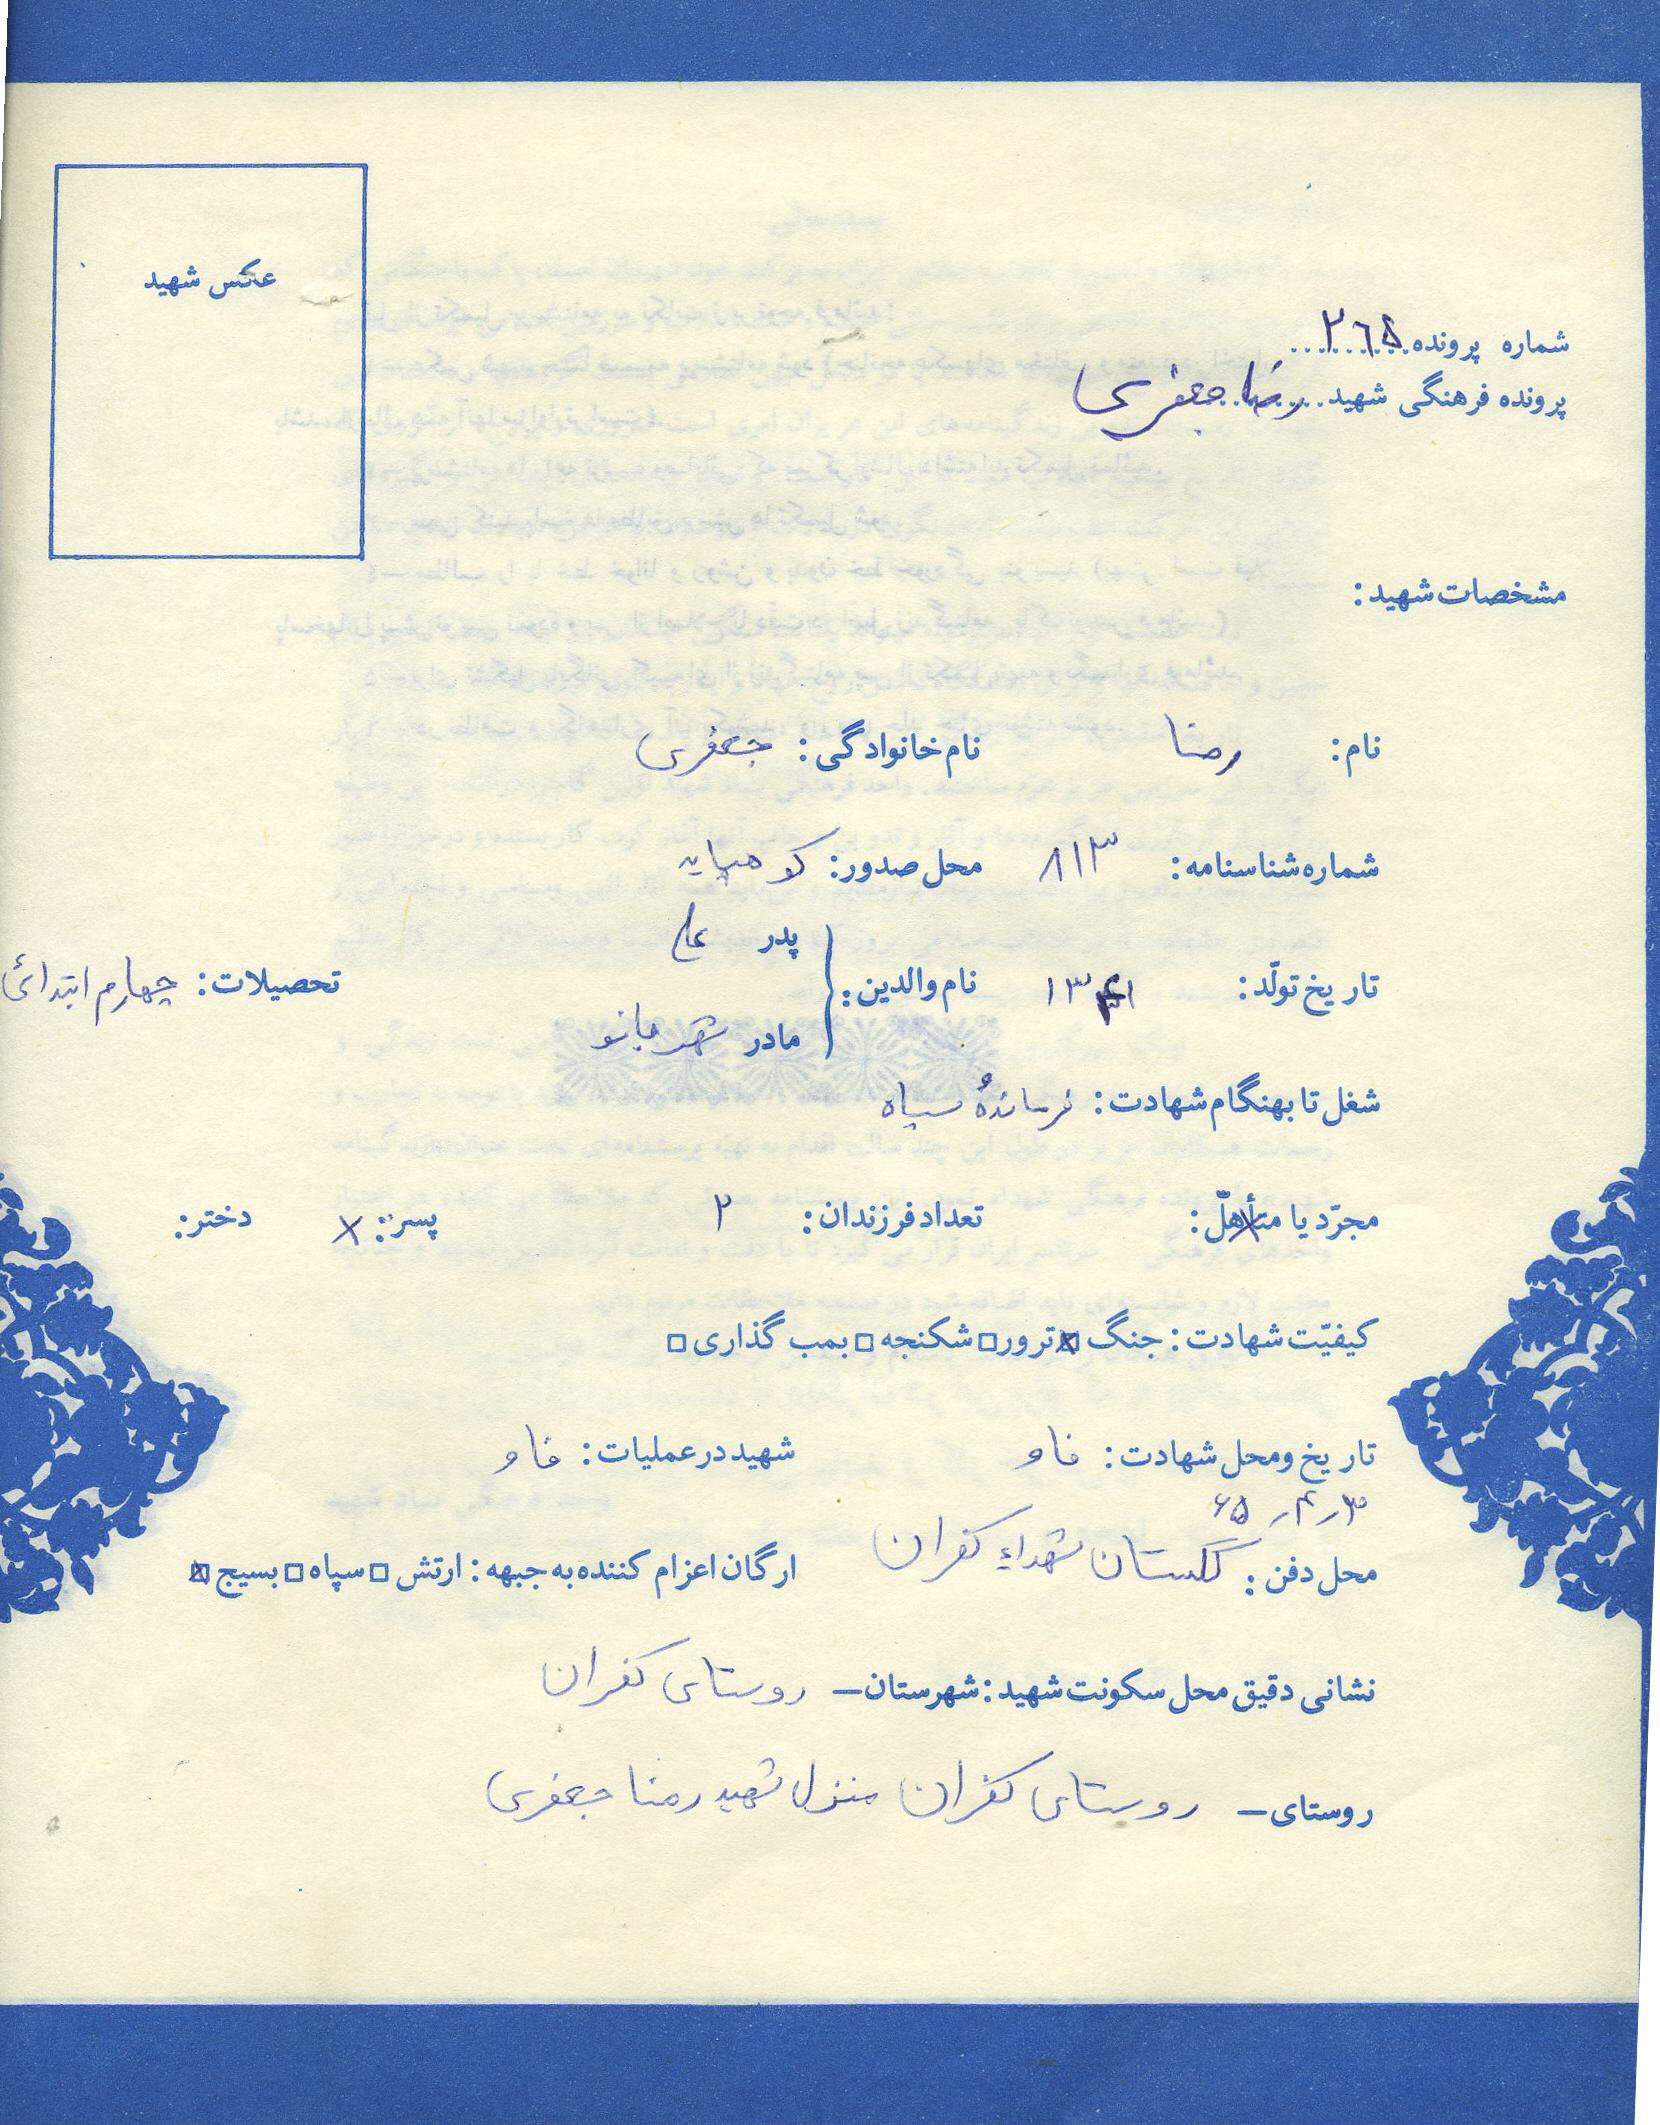 عکس شهید
شماره پرونده ۲۶۵
پرونده فرهنگی شهید رضا جعفری
مشخصات شهید:
نام: رضا نام خانوادگی: جعفری
شماره شناسنامه: ۸۱۳ محل صدور: کوهپایه
تاریخ تولّد: نام والدین: پدر علی
مادر شهربانو
تحصیلات: چهارم ابتدائی
شغل تا بهنگام شهادت: فرماندهٔ سپاه
مجرّد یا متأهلّ: تعداد فرزندان: ۲ پسر: x دختر:
کیفیّت شهادت: جنگ ☒ ترور □ شکنجه □ بمب گذاری □
تاریخ و محل شهادت: فاو شهید در عملیات: فاو
محل دفن: گلستان شهداء کفران ارگان اعزام کننده به جبهه: ارتش □ سپاه □ بسیج ☒
نشانی دقیق محل سکونت شهید: شهرستان— روستای کفران
روستای— روستای کفران منزل شهید رضا جعفری